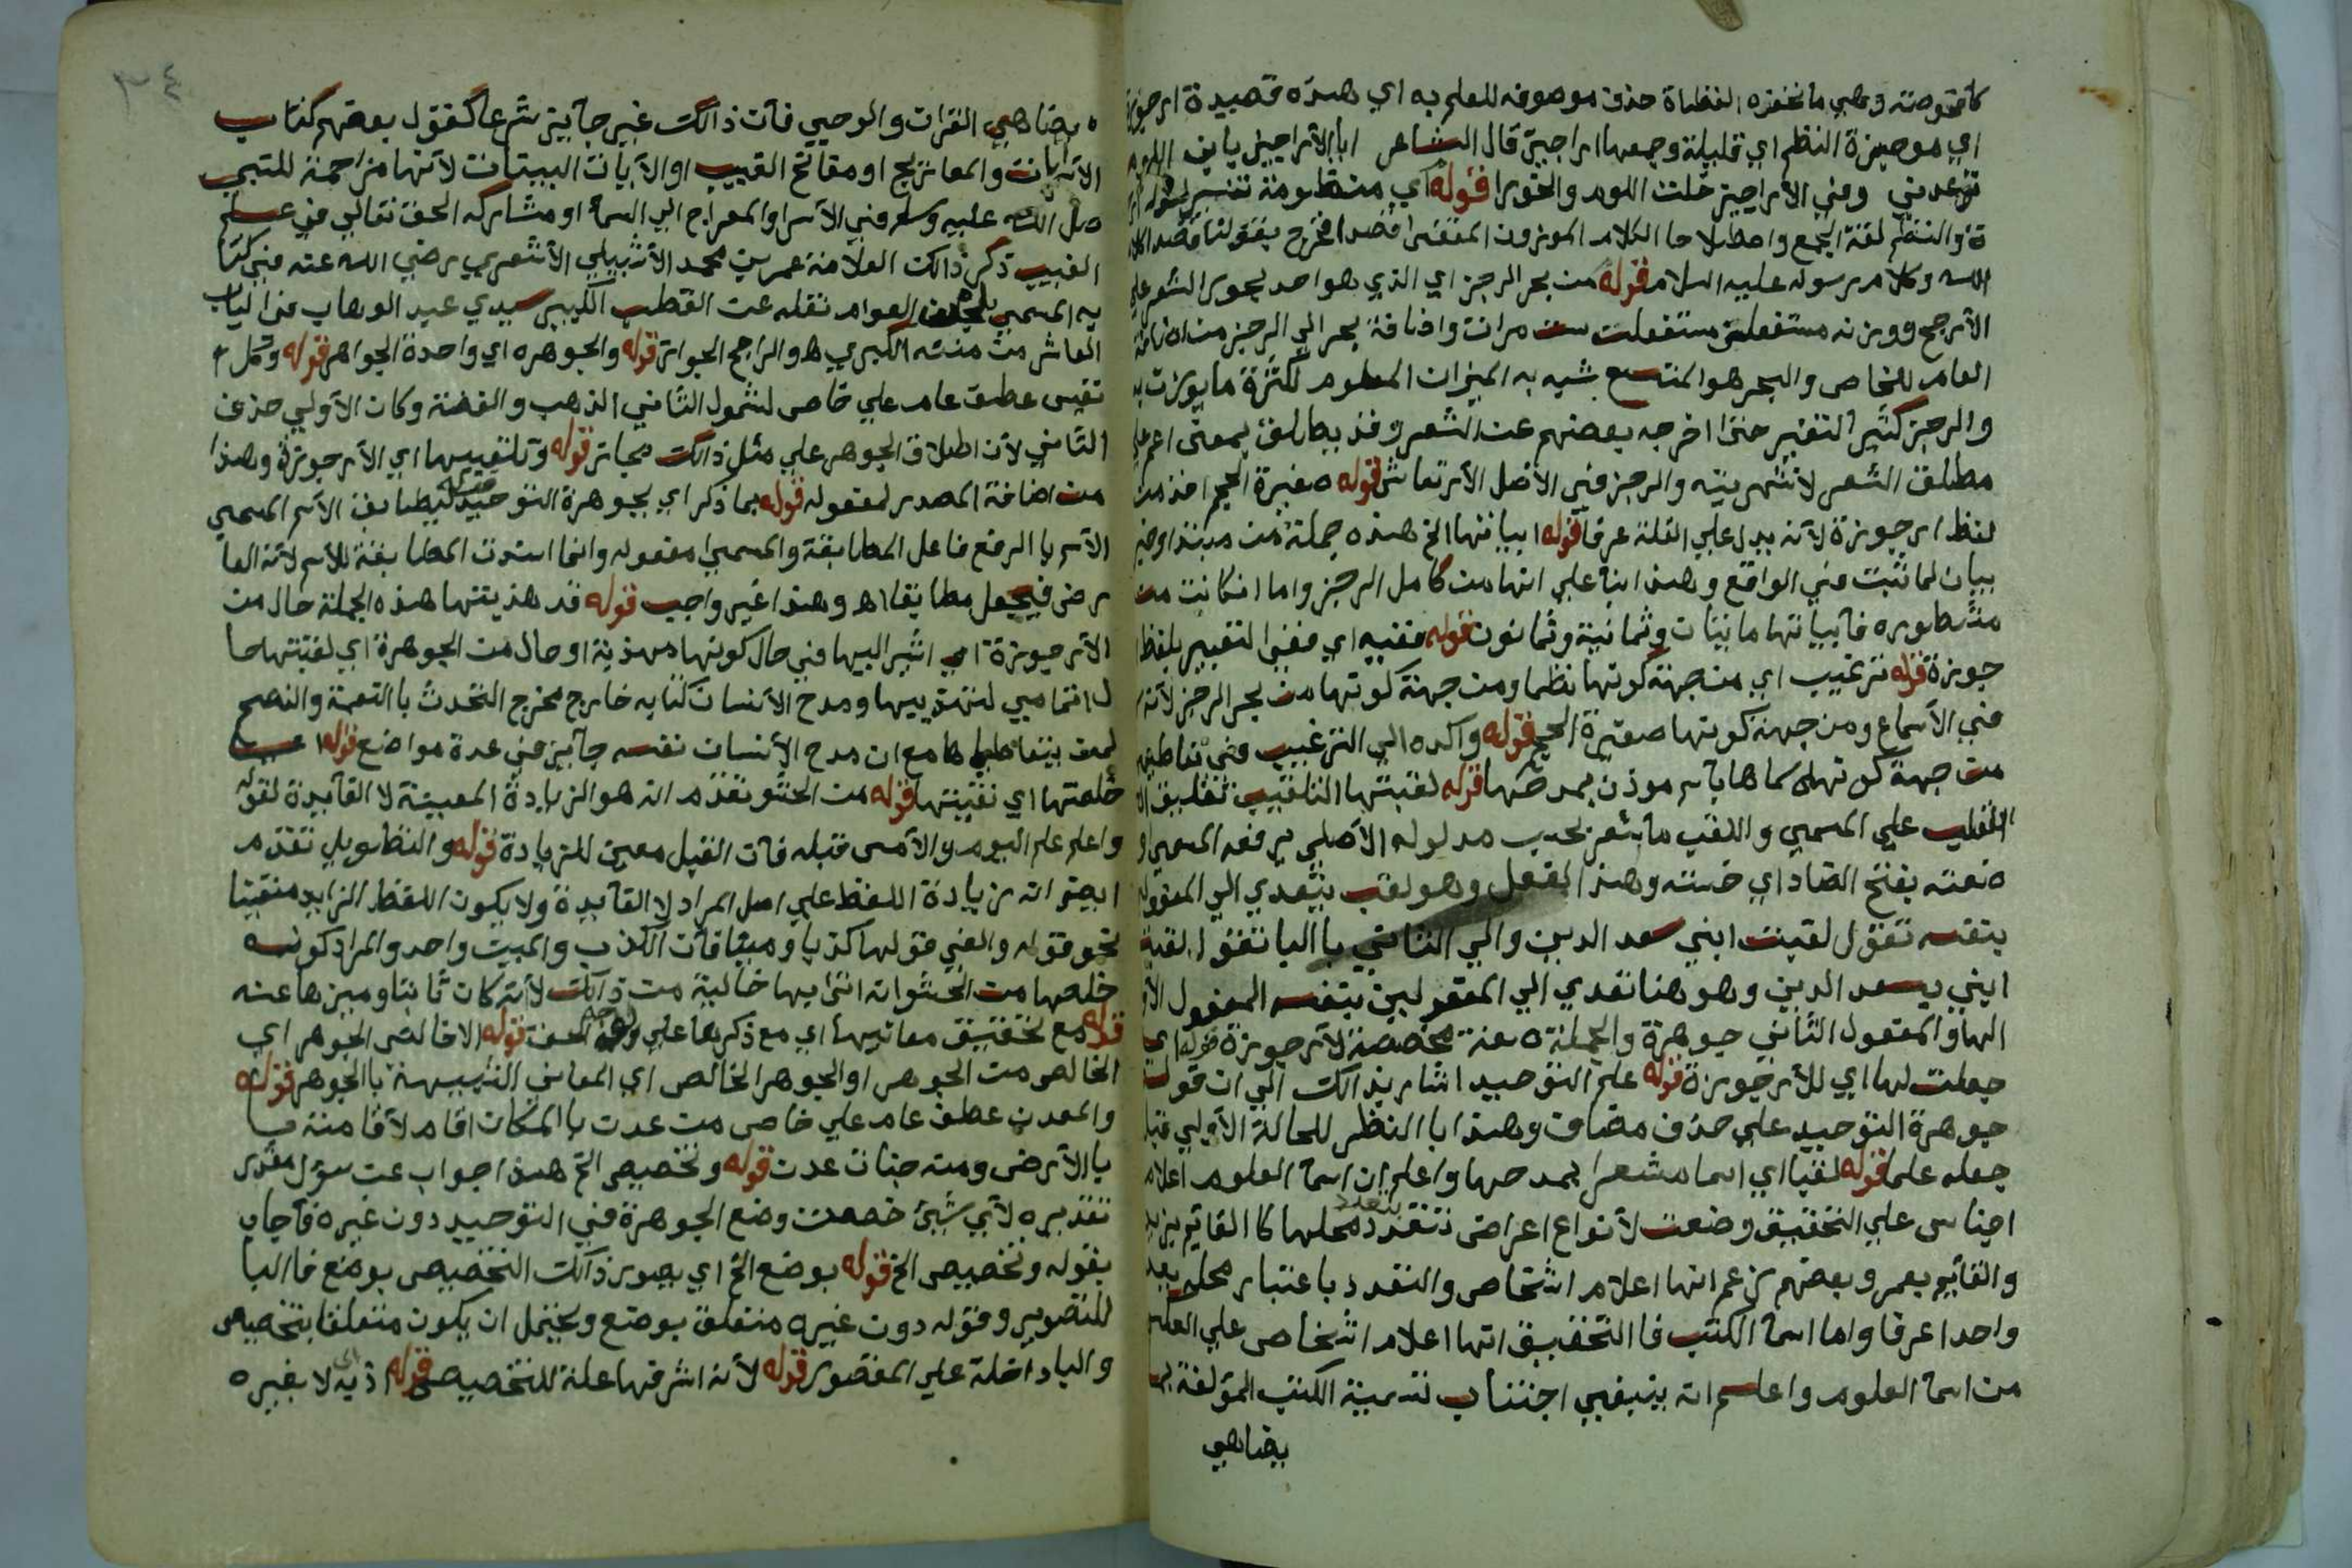 اي موجزة النظم اي قليلة وجمعها اراجيز قال الشاعر ابا الأراجيز يابن اللوم
توعدني وفي الأراجيز خلت اللوم والخورا قوله اي منظومة تفسير لقوله
ة والنظم لغة الجمع واصطلاحا الكلام الموزون المقفى قصدا فخرج بقولنا قصدا كلام
الله وكلام رسوله عليه السلام قوله من بحر الرجز اي الذي هو احد بحور الشعر علي
الأرجح ووزنه مستفعلن مستفعلن ست مرات واضافة بحر الي الرجز من اضافة
العام للخاص والبحر هو المتسع شبه به الميزان المعلوم لكثرة ما يوزن به
والرجز كثير التغير حتى اخرجه بعضهم عن الشعر وقد يطلق بمعنى اعم علي
مطلق الشعر والرجز في الأصل الأرتعاش قوله صغيرة الحجم اخذ من
لفظ ارجوزة لأنه يدل علي القلة عرفا قوله ابياتها الخ هذه جملة من مبتدا وخبر
بيان لما ثبت في الواقع وهذا بنا علي انها من كامل الرجز واما ان كانت من
مشطوره فأبياتها مايتان وثمانية وثمانون قوله ففيه اي ففي التعبير بلفظ
جوزة قوله ترغيب اي من جهة كونها نظما ومن جهة كونها من بحر الرجز لأنه
في الأسماع ومن جهة كونها صغيرة الحجم قوله واكده اي الترغيب في تعاطيه
من جهة كونه سماها باسم موذن بمدحها قوله لقبتها التلقيب تعليق
اللقب علي المسمي واللقب ما يشعر بحسب مدلوله الأصلي برفعة المسمي او
ضعته بفتح الضاد اي خسته وهذا الفعل وهو لقب يتعدي الي المفعول
بنفسه تقول لقبت ابني سعد الدين والي الثاني بالبا تقول لقبت
ابني بسعد الدين وهو هنا تعدي الي المفعولين بنفسه المفعول الأول
الها والمفعول الثاني جوهرة والجملة صفة مخصصة لأرجوزة قوله اي
جعلت لها اي للأرجوزة قوله علم التوحيد اشار بذالك الي ان قوله
جوهرة التوحيد علي حذف مضاف وهذا با النظر للحالة الأولي قبل
جعله علما قوله لقبا اي اسما مشعرا بمدحها واعلم ان اسما العلوم اعلام
اجناس علي التحقيق وضعت لأنواع اعراض تتعدد بتعدد محلها كا القايم بزيد
والقايم بعمرو وبعضهم زعم انها اعلام اشخاص والتعدد باعتبار محله يعد
واحدا عرفا واما اسما الكتب فا التحقيق انها اعلام اشخاص علي العكس
من اسما العلوم واعلم انه ينبغي اجتناب تسمية الكتب المؤلفة بما
يضاهي
٣٤
ه يضاهي القران والوحي فأن ذالك غير جايز شرعا كقول بعضهم كتاب
الآيات والمعاريج او مفاتح الغيب او الآيات البينات لأنها مزاحمة للنبي
صل الله عليه وسلم في الأسرا والمعراج الي السما او مشاركة الحق تعالي في علم
الغيب ذكر ذالك العلامة عمر بن محمد الأشبيلي الأشعري رضي الله عنه في كتا
به المسمي بلحن العوام نقله عنه القطب الكبير سيدي عبد الوهاب في الباب
العاشر من مننه الكبري هو الراجح الجواز قوله والجوهره اي واحدة الجواهر قوله وكل
نفيس عطف عام علي خاص لشمول الثاني الذهب والفضة وكان الأولي حذف
الثاني لأن اطلاق الجوهر علي مثل ذالك مجاز قوله وتلقيبها اي الأرجوزة وهذا
من اضافة المصدر لمفعوله قوله بما ذكر اي بجوهرة التوحيد قوله ليطابق الأسم المسمي
الأسم با الرفع فاعل المطابقة والمسمي مفعوله وانما اسندت المطابقة للأسم لأنه العا
رض فيجعل مطابقا له وهذا غير واجب قوله قد هذبتها هذه الجملة حال من
الأرجوزة اي اشير اليها في حال كونها مهذبة او حال من الجوهرة اي لقبتها حا
ل اتمامي لتهذيبها ومدح الأنسان كتابه خارج مخرج التحدث با النعمة والنصح
لمن يتعاطاها مع ان مدح الأنسان نفسه جايز في عدة مواضع قوله
خلصتها اي نقيتها قوله من الحشو تقدم انه هو الزيادة المعينة لا لفايدة لقوله
واعلم علم اليوم والأمس قبله فأن القبل معين للزيادة قوله والتطويل تقدم
ايضا انه زيادة اللفظ علي اصل المراد لا لفايدة ولا يكون اللفظ الزايد متعينا
نحو قوله والفي قولها كذبا ومينا فأن الكذب والمين واحد والمراد كونه
خلصها من الحشو انه اتي بها خالية من ذالك لا أنه كان ثابتا وميزها عنه
قوله مع تحقيق معانيها اي مع ذكرها علي وجه الحق قوله الا خالص الجوهر اي
الخالص من الجوهر او الجوهر الخالص اي المعاني الشبيهة با الجوهر قوله
والمعدن عطف عام علي خاص من عدن با المكان اقام لأقامته
با الأرض ومنه جنات عدن قوله وتخصيص الخ هذا جواب عن سؤل مقدر
تقديره لأي شيئ خصصت وضع الجوهرة في التوحيد دون غيره فأجاب
بقوله وتخصيص الخ قوله بوضع الخ اي بصور ذالك التخصيص بوضع فا البا
للتصوير وقوله دون غيره متعلق بوضع ويحتمل ان يكون متعلقا بتخصيص
والبا داخلة علي المقصور قوله لأنه اشرفها علة للتخصيص قوله اذ به اي لا بغيره